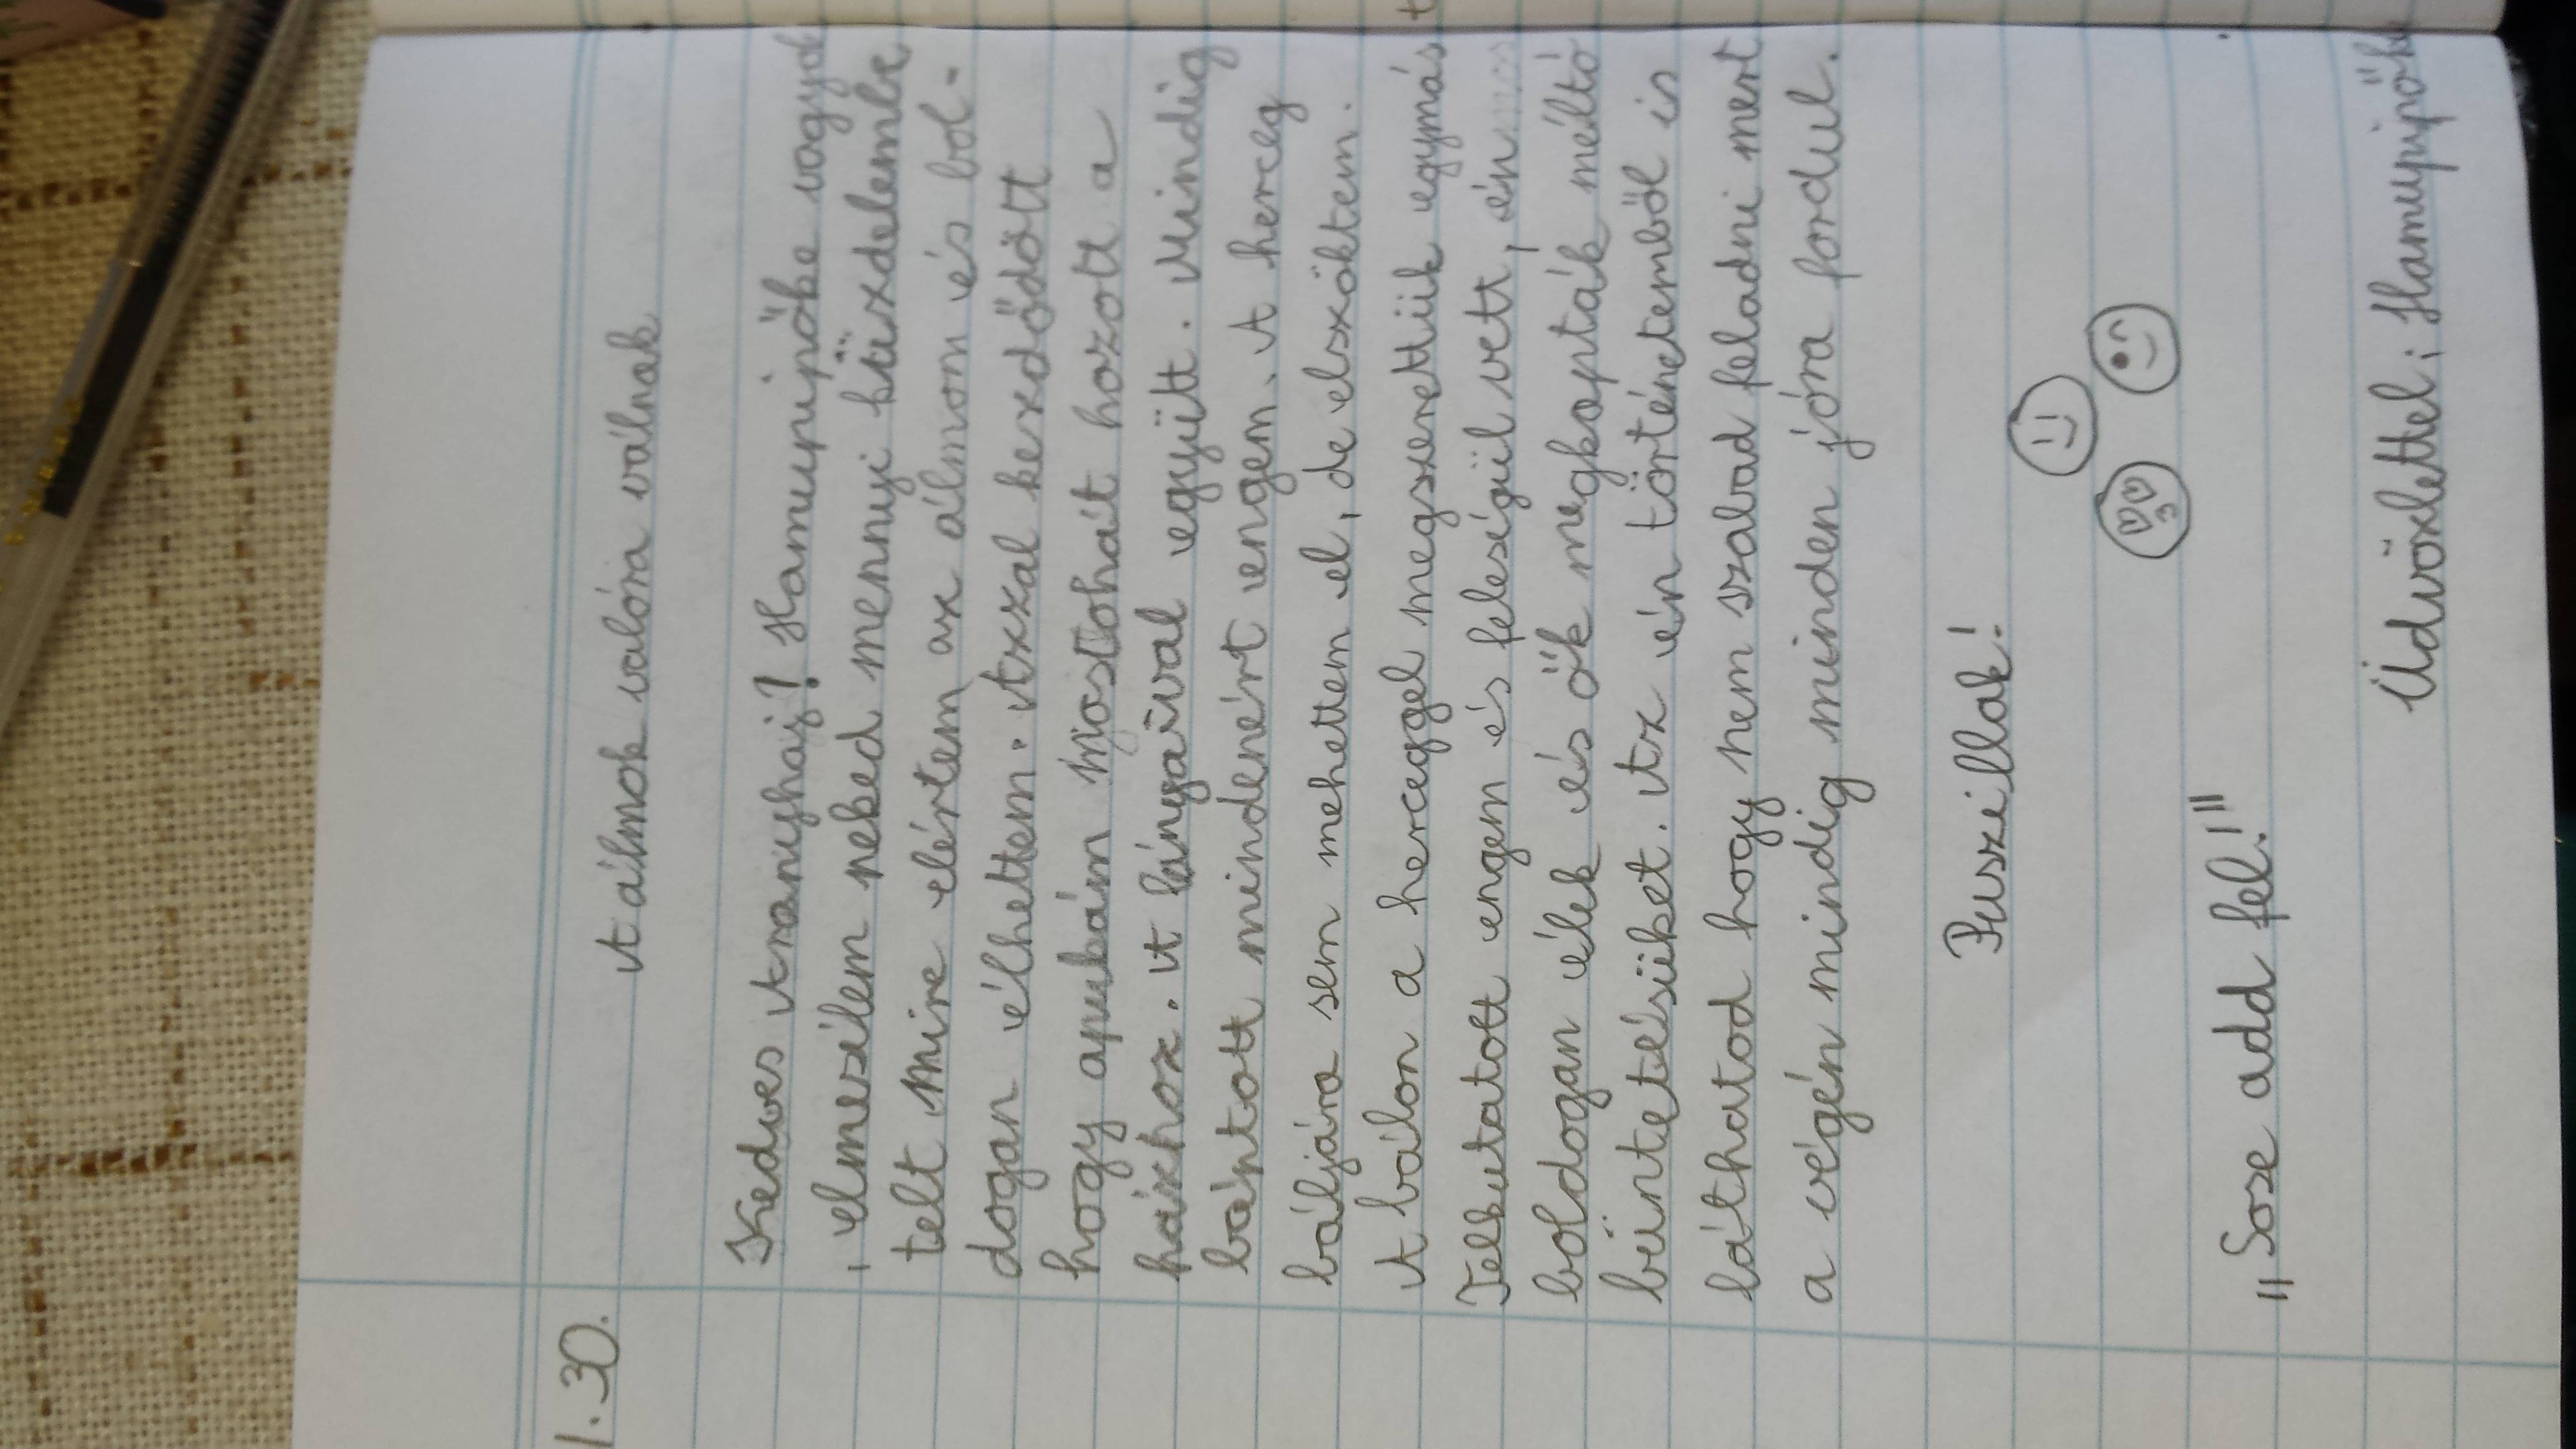 1.30.
A álmok valóra válnak
Kedves Aranyhaj! Hamupipőke vagyok
, elmesélem neked mennyi küszdelembe
telt mire elértem az álmom és bol-
dogan élhettem. Azzal kezdődött
hogy apukám mostohát hozott a
házhoz. A lányaival együtt. Mindig
bántott mindenért engem. A herceg
báljára sem mehettem el, de elszöktem.
A bálon a herceggel megszerettük egymás
Felkutatott engem és feleségül vett, én
boldogan élek és ők megkapták méltó
büntetésüket. Az én történetemből is
láthatod hogy nem szabad feladni mert
a végén mindig minden jóra fordul.
Puszillak!
"Sose add fel!"
Üdvözlettel: Hamupipőke